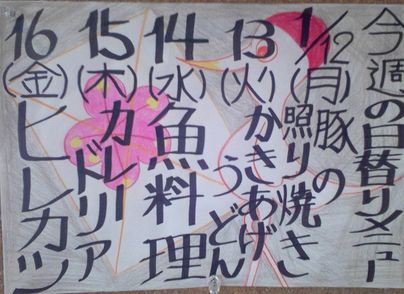 今週の日替りメニュー
1/12(月)豚の照り焼き
13(火)かきあげうどん
14(水)魚料理
15(木)カレードリア
16(金)ヒレカツ